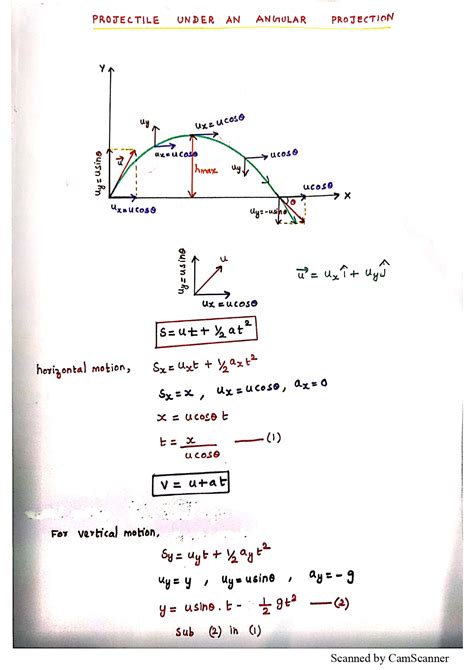 PROJECTILE UNDER AN ANGULAR PROJECTION
Y
uy
ux = ucosθ
ux = ucosθ
ucosθ
uy
hmax
uy = usinθ
ux = ucosθ
ucosθ
θ
X
uy = -usinθ
uy = usinθ
u
ux = ucosθ
u⃗ = ux î + uy ĵ
S = ut + ½ at²
horizontal motion, Sx = uxt + ½ axt²
Sx = x , ux = ucosθ, ax = 0
x = ucosθ t
t = x / ucosθ —(1)
V = u + at
For vertical motion,
Sy = uyt + ½ ayt²
uy = y , uy = usinθ , ay = -g
y = usinθ . t - ½ gt² —(2)
sub (2) in (1)
Scanned by CamScanner